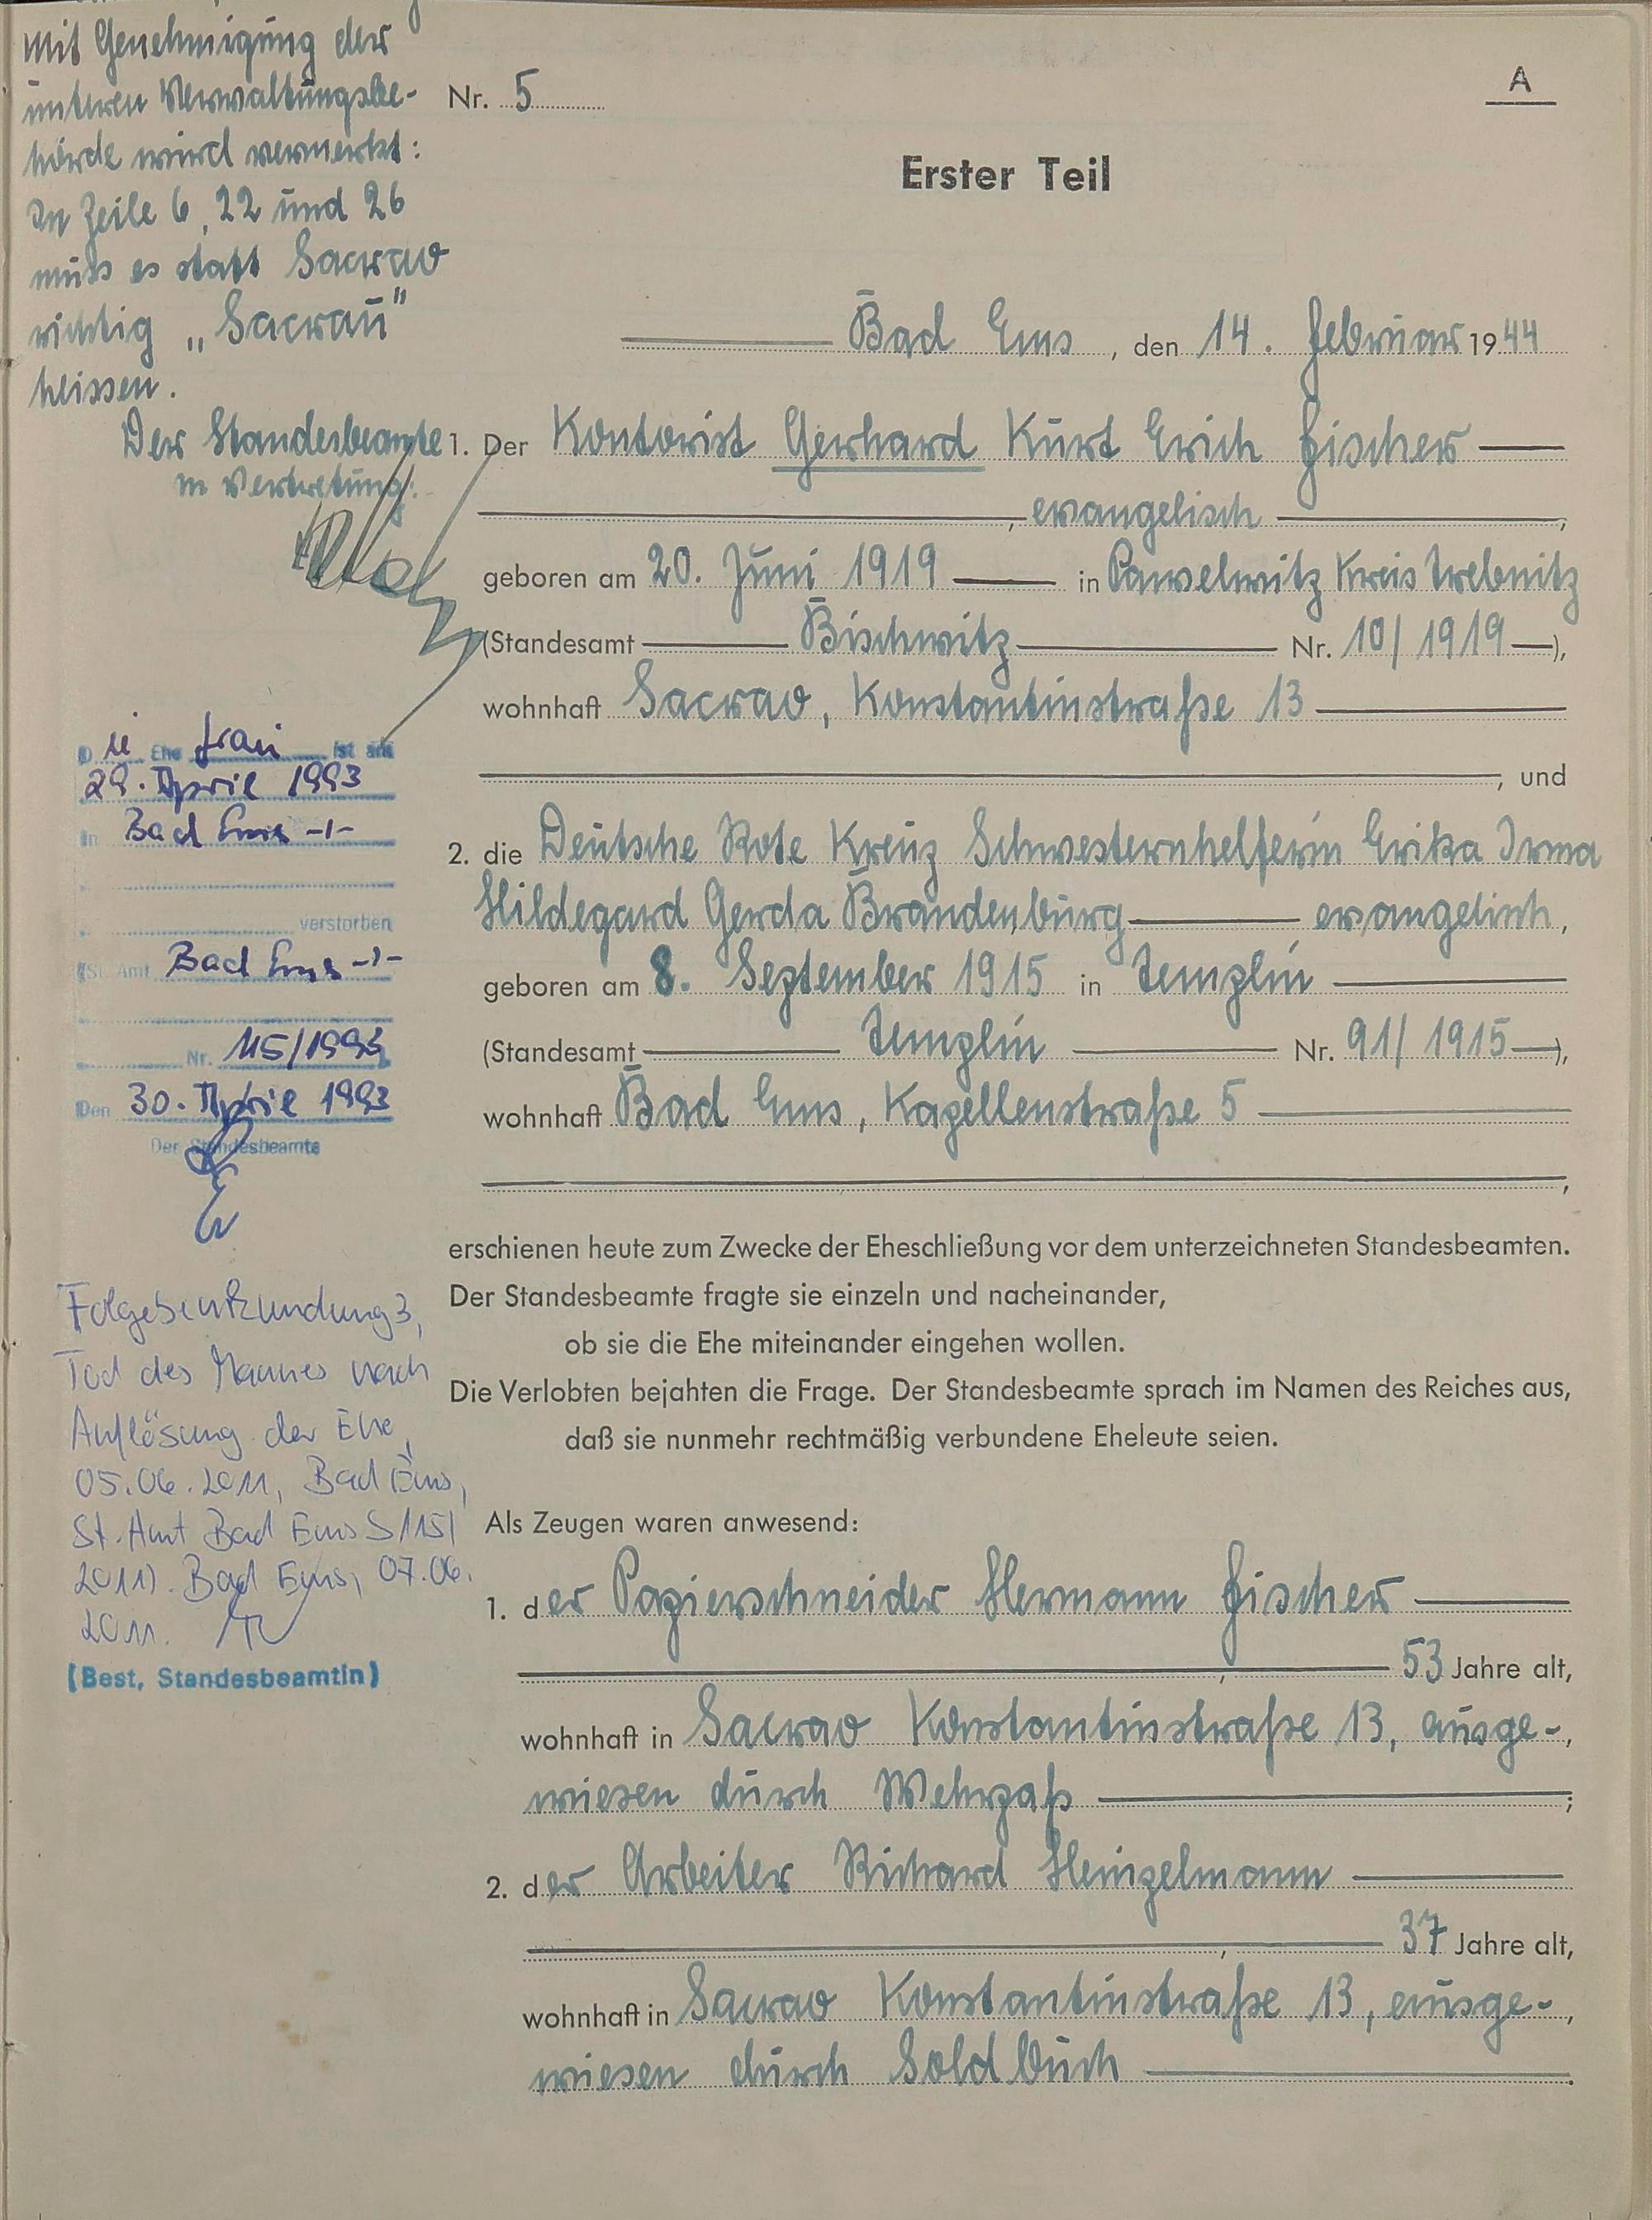 Mit Genehmigung der
unteren Verwaltungsbe-
hörde wird vermerkt:
In Zeile 6, 22 und 26
muss es statt Sacrao
richtig „Sacrau"
heissen.
Der Standesbeamte
In Vertretung:
Die Ehe frau ist am
29. April 1993
in Bad Ems -/-
verstorben
(St. Amt Bad Ems -/-
Nr. 115/1993
Den 30. April 1993
Der Standesbeamte
Folgebeurkundung 3,
Tod des Mannes nach
Auflösung der Ehe,
05.06.2011, Bad Ems,
St.Amt Bad Ems S 115/
2011). Bad Ems, 07.06.
2011.
(Best, Standesbeamtin)
A
Nr. 5
Erster Teil
Bad Ems, den 14. Februar 1944
1. Der Kontorist Gerhard Kurt Erich Fischer
, evangelisch,
geboren am 20. Juni 1919 in Pawelwitz Kreis Trebnitz
(Standesamt Bischwitz Nr. 10/1919),
wohnhaft Sacrao, Konstantinstraße 13
, und
2. die Deutsche Rote Kreuz Schwesternhelferin Erika Irma
Hildegard Gerda Brandenburg evangelisch,
geboren am 8. September 1915 in Templin
(Standesamt Templin Nr. 91/1915),
wohnhaft Bad Ems, Kapellenstraße 5
,
erschienen heute zum Zwecke der Eheschließung vor dem unterzeichneten Standesbeamten.
Der Standesbeamte fragte sie einzeln und nacheinander,
ob sie die Ehe miteinander eingehen wollen.
Die Verlobten bejahten die Frage. Der Standesbeamte sprach im Namen des Reiches aus,
daß sie nunmehr rechtmäßig verbundene Eheleute seien.
Als Zeugen waren anwesend:
1. der Papierschneider Hermann Fischer
, 53 Jahre alt,
wohnhaft in Sacrao Konstantinstraße 13, ausge-,
wiesen durch Wehrpaß;
2. der Arbeiter Richard Heinzelmann
, 37 Jahre alt,
wohnhaft in Sacrao Konstantinstraße 13, ausge-,
wiesen durch Soldbuch.